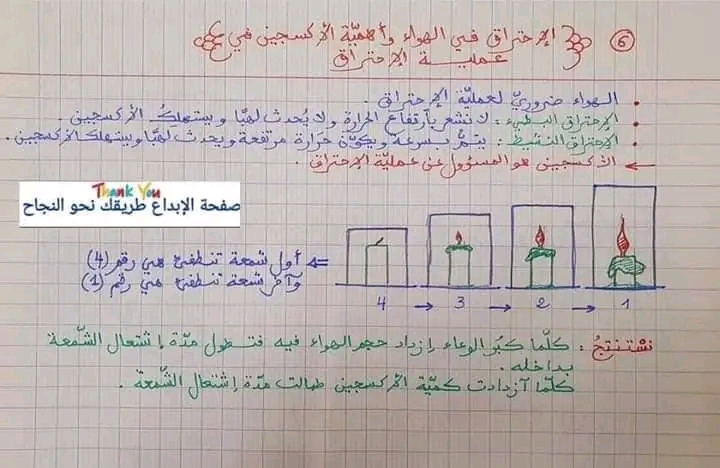 6 الإحتراق في الهواء وأهميّة الأكسجين في
عملية الإحتراق
• الهواء ضروريّ لعمليّة الإحتراق.
• الإحتراق البطيء: لا نشعر بآرتفاع الحرارة ولا يُحدث لهبًا ويستهلك الأكسجين.
• الإحتراق النشيط: يتمُّ بسرعة ويكوّن حرارة مرتفعة ويحدث لهبًا ويستهلك الأكسجين.
← الأكسجين هو المسؤول عن عمليّة الإحتراق.
Thank You
صفحة الإبداع طريقك نحو النجاح
⇐ أول شمعة تنطفئ هي رقم (4)
وآخر شمعة تنطفئ هي رقم (1)
4 → 3 → 2 → 1
نستنتجُ: كلّما كبُر الوعاء إزداد حجم الهواء فيه فتطول مدّة إشتعال الشّمعة
بداخله.
كلّما آزدادت كميّة الأكسجين طالت مدّة إشتعال الشّمعة.